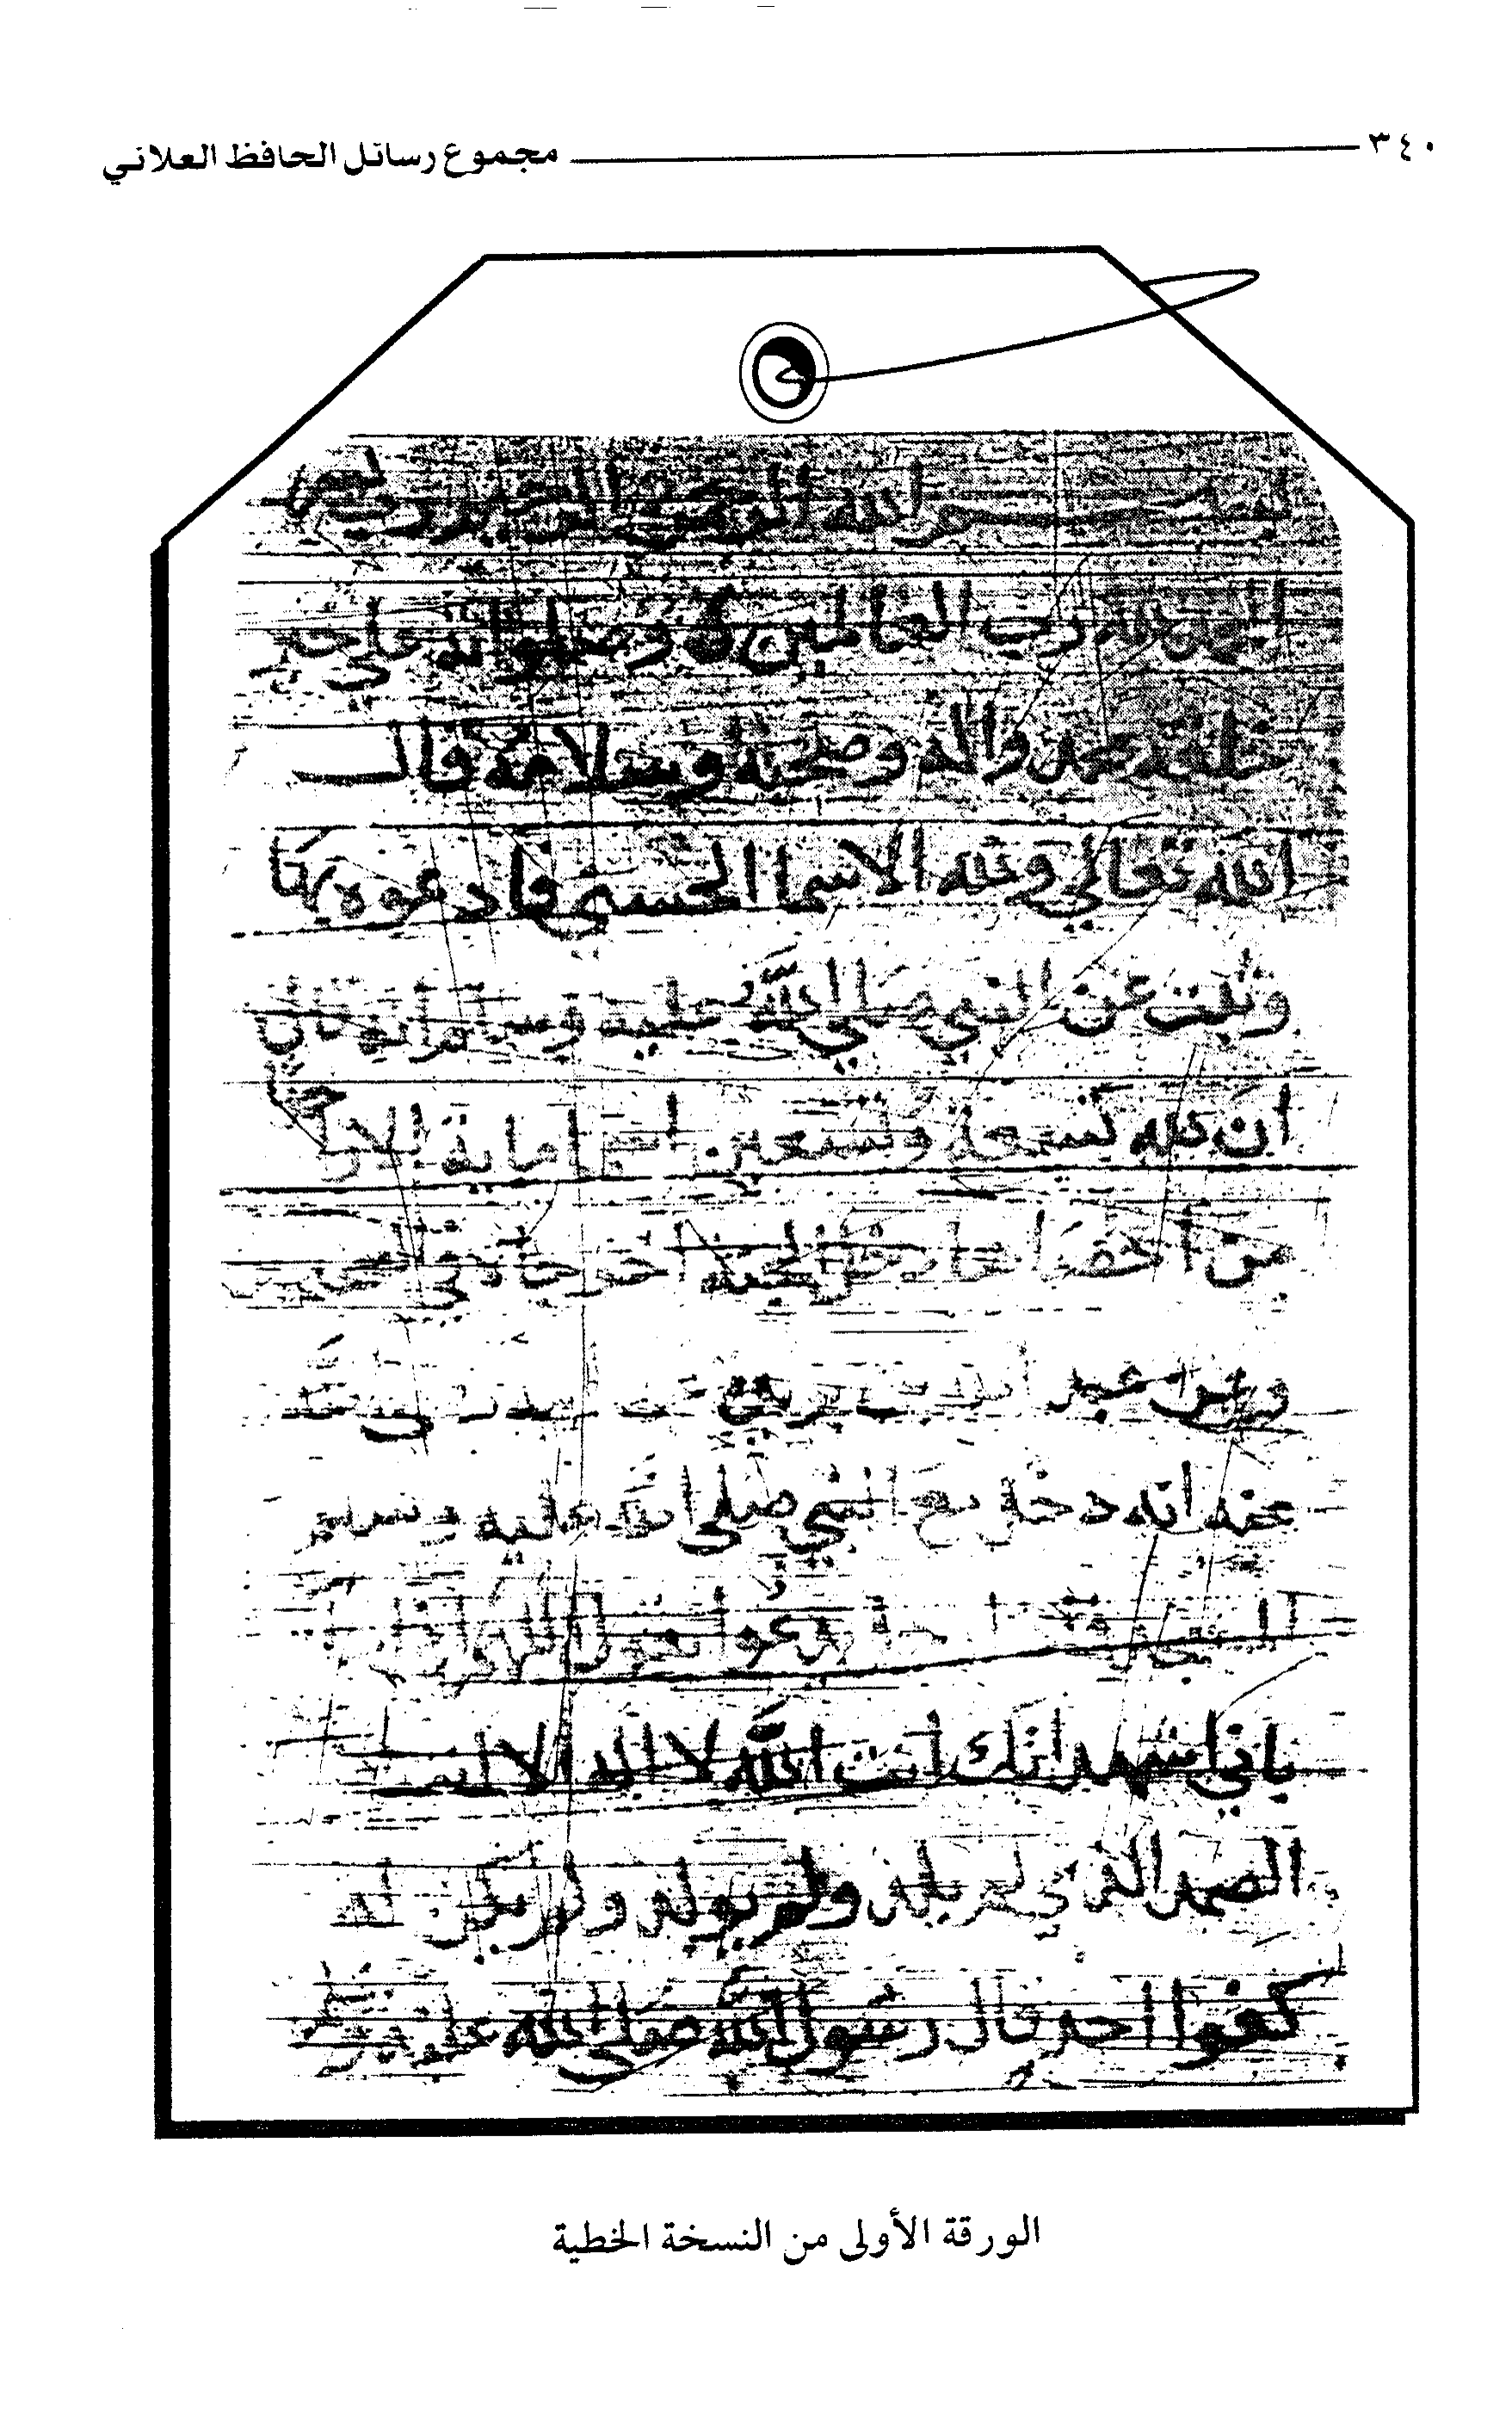 ٣٤٠ مجموع رسائل الحافظ العلائي
بسم الله الرحمن الرحيم
الحمد لله رب العالمين وصلواته على خير
خلقه محمد واله وصحبه وسلامه قال
الله تعالى ولله الاسما الحسنى فادعوه بها
وثبت عن النبي صلى الله عليه وسلم انه قال
ان لله تسعة وتسعين اسما ماية الا واحدا
من احصاها دخل الجنة اخرجاه في الصحيحين
وعن عبد الله بن بريدة عن
عنه انه دخل مع النبي صلى الله عليه وسلم
المسجد يدعوا يقول اللهم اني
باني اشهد انك انت الله لا اله الا انت
الصمد الذي لم يلد ولم يولد ولم يكن له
كفوا احد قال رسول الله صلى الله عليه وسلم
الورقة الأولى من النسخة الخطية